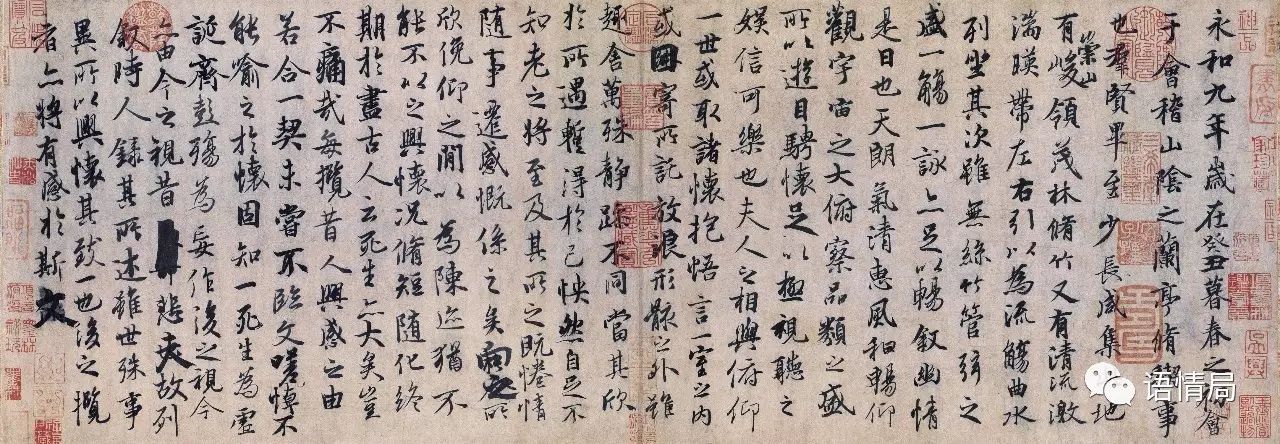 永和九年歲在癸丑暮春之初會
于會稽山陰之蘭亭脩禊事
也羣賢畢至少長咸集此地
有崇山峻領茂林脩竹又有清流激
湍暎帶左右引以為流觴曲水
列坐其次雖無絲竹管弦之
盛一觴一詠亦足以暢敘幽情
是日也天朗氣清惠風和暢仰
觀宇宙之大俯察品類之盛
所以遊目騁懷足以極視聽之
娛信可樂也夫人之相與俯仰
一世或取諸懷抱悟言一室之內
或因寄所託放浪形骸之外雖
趣舍萬殊靜躁不同當其欣
於所遇暫得於己怏然自足不
知老之將至及其所之既惓情
隨事遷感慨係之矣向之所
欣俛仰之閒以為陳迹猶不
能不以之興懷況脩短隨化終
期於盡古人云死生亦大矣豈
不痛哉每攬昔人興感之由
若合一契未嘗不臨文嗟悼不
能喻之於懷固知一死生為虛
誕齊彭殤為妄作後之視今
亦由今之視昔悲夫故列
敘時人錄其所述雖世殊事
異所以興懷其致一也後之攬
者亦將有感於斯文
语情局